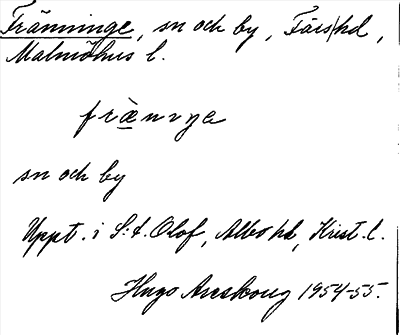 Tränninge, sn och by, Färs hd,
Malmöhus l.
fræ̀nɩŋe
sn och by
Uppt. i S:t. Olof, Albo hd, Krist. l.
Hugo Areskoug 1954-55.